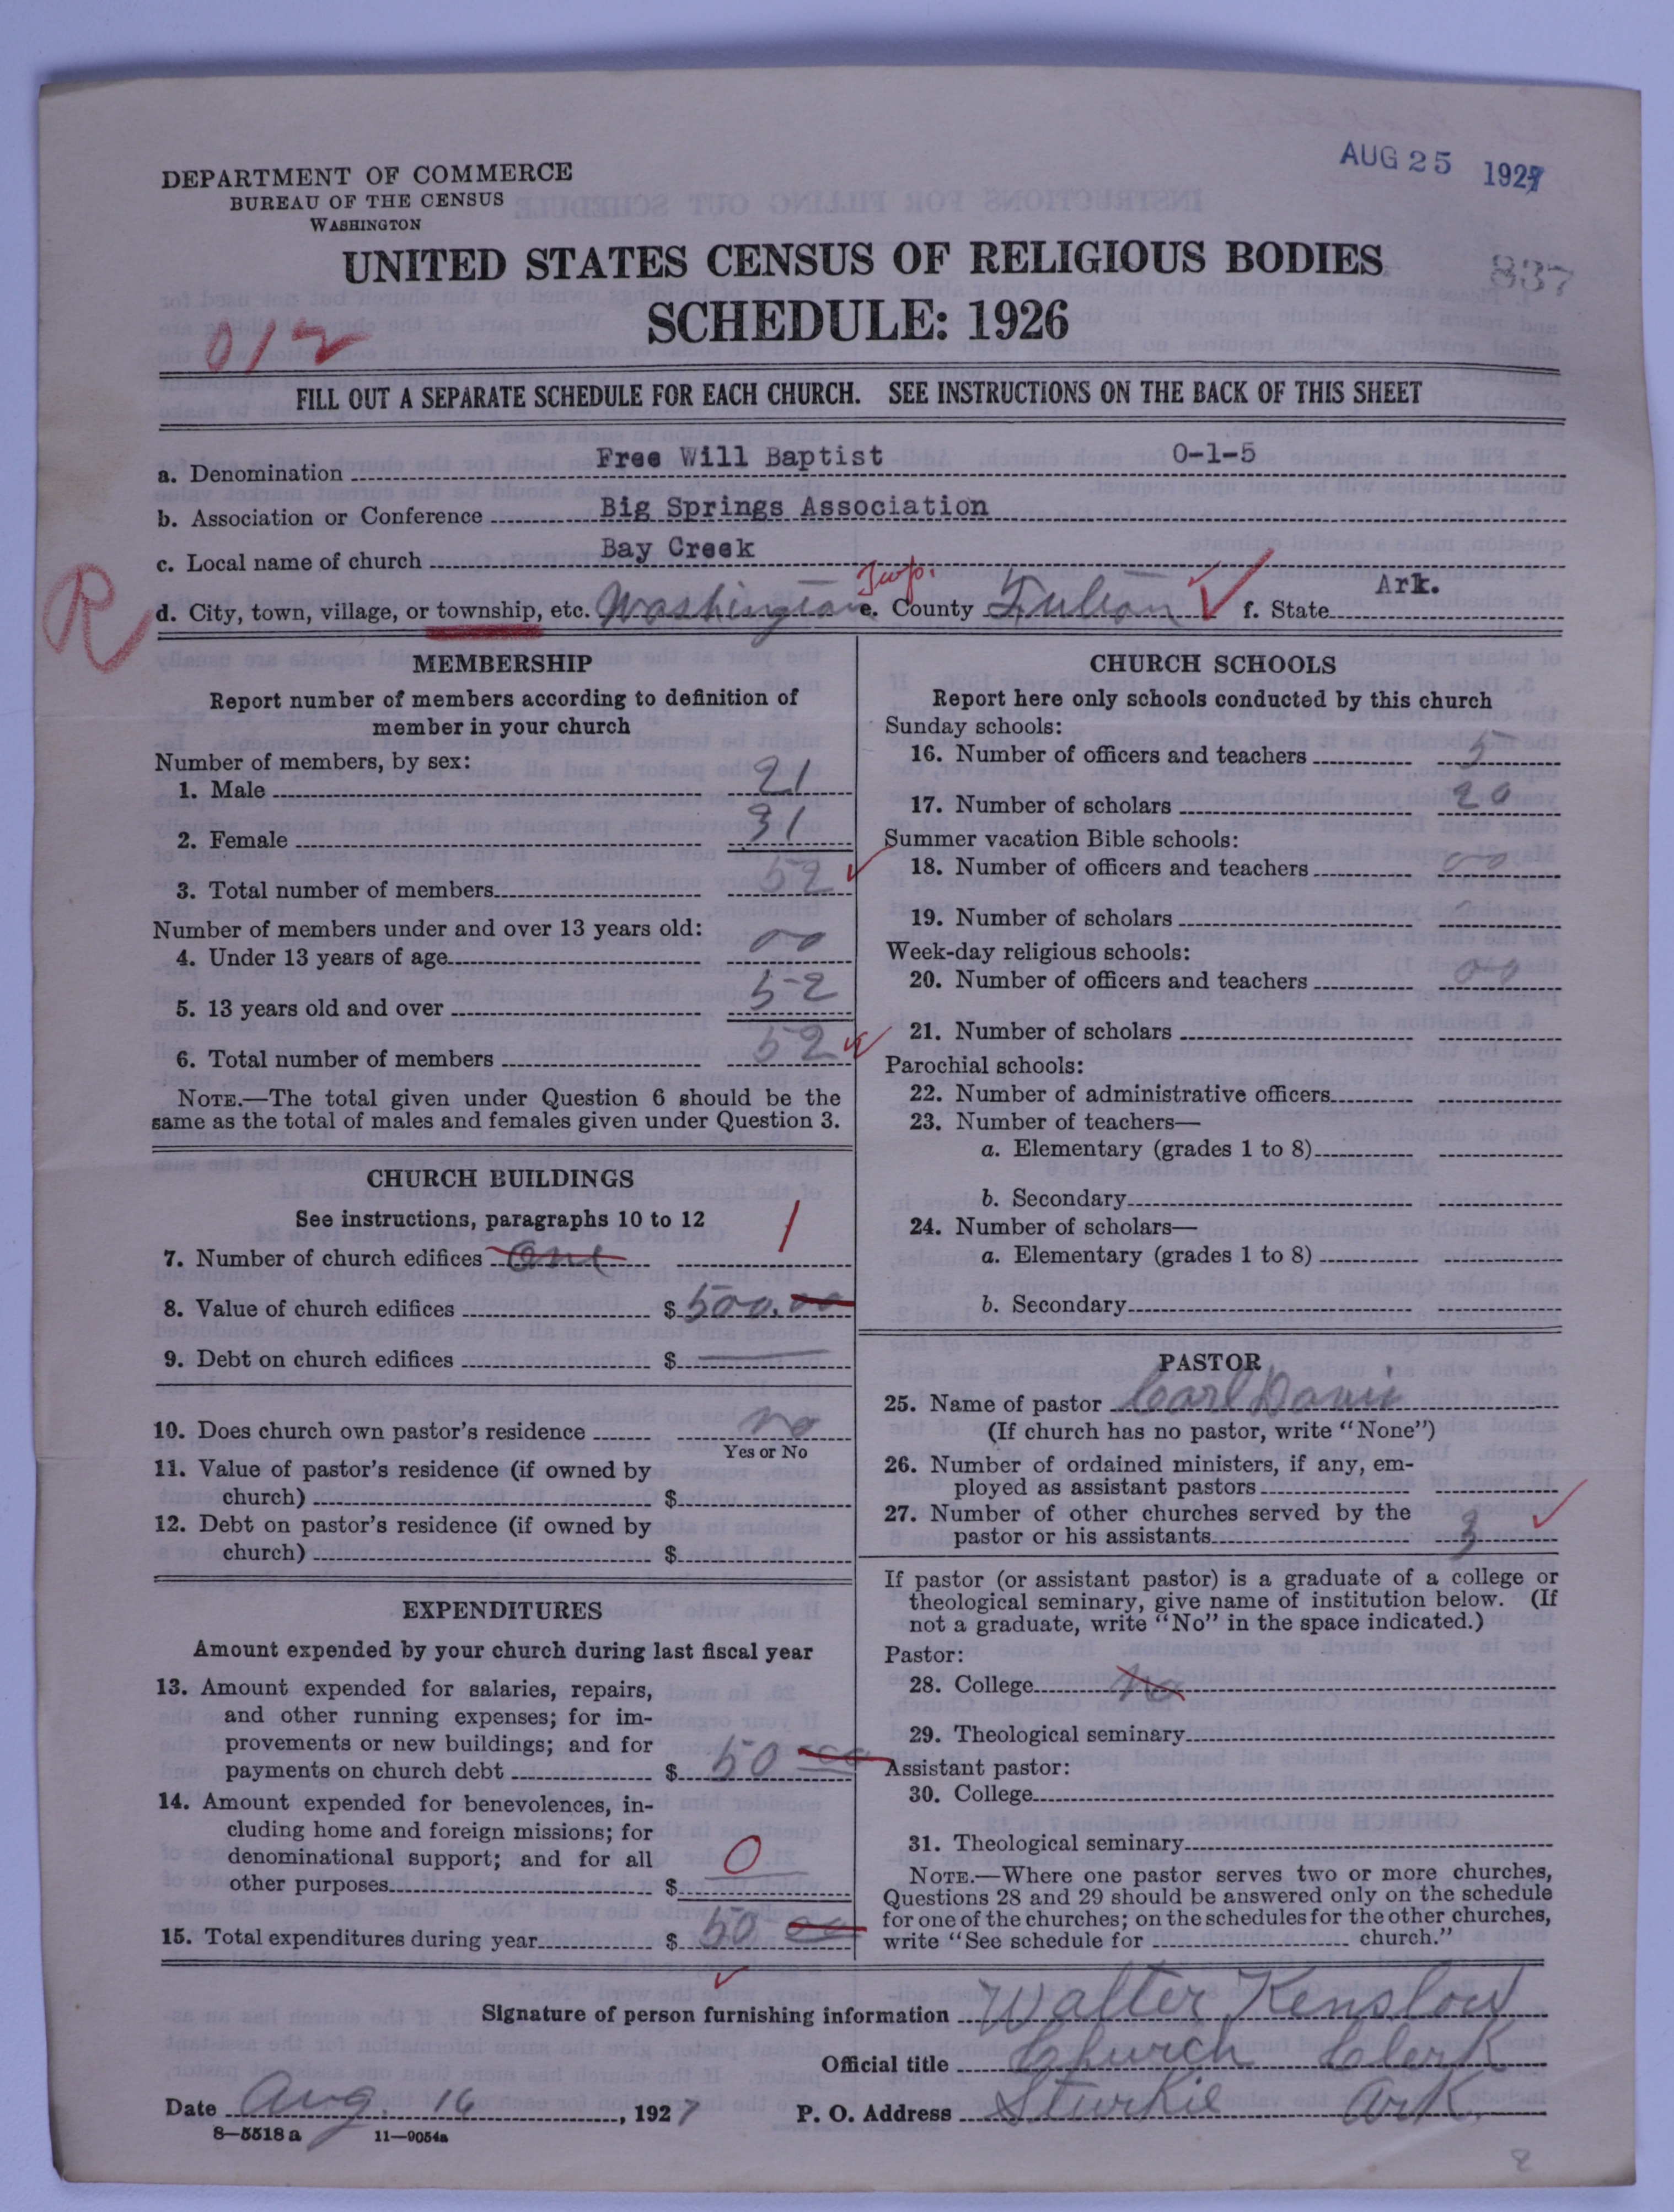 AUG 25 1927
DEPARTMENT OF COMMERCE
BUREAU OF THE CENSUS
WASHINGTON
UNITED STATES CENSUS OF RELIGIOUS BODIES
837
SCHEDULE: 1926
012
FILL OUT A SEPARATE SCHEDULE FOR EACH CHURCH. SEE INSTRUCTIONS ON THE BACK OF THIS SHEET
a. Denomination Free Will Baptist 0-1-5
b. Association or Conference Big Springs Association
c. Local name of church Bay Creek
R
d. City, town, village, or township, etc. Washington Twp. e. County Fulton f. State Ark.
MEMBERSHIP
Report number of members according to definition of
member in your church
Number of members, by sex:
1. Male 21
2. Female 31
3. Total number of members 52
Number of members under and over 13 years old:
4. Under 13 years of age 00
5. 13 years old and over 52
6. Total number of members 52
NOTE.—The total given under Question 6 should be the
same as the total of males and females given under Question 3.
CHURCH BUILDINGS
See instructions, paragraphs 10 to 12
7. Number of church edifices one 1
8. Value of church edifices $ 500.00
9. Debt on church edifices $
10. Does church own pastor's residence no
Yes or No
11. Value of pastor's residence (if owned by
church) $
12. Debt on pastor's residence (if owned by
church) $
EXPENDITURES
Amount expended by your church during last fiscal year
13. Amount expended for salaries, repairs,
and other running expenses; for im-
provements or new buildings; and for
payments on church debt $ 50 00
14. Amount expended for benevolences, in-
cluding home and foreign missions; for
denominational support; and for all
other purposes $ 0
15. Total expenditures during year $ 50 00
CHURCH SCHOOLS
Report here only schools conducted by this church
Sunday schools:
16. Number of officers and teachers 5
17. Number of scholars 20
Summer vacation Bible schools:
18. Number of officers and teachers 00
19. Number of scholars
Week-day religious schools:
20. Number of officers and teachers 00
21. Number of scholars
Parochial schools:
22. Number of administrative officers
23. Number of teachers—
a. Elementary (grades 1 to 8)
b. Secondary
24. Number of scholars—
a. Elementary (grades 1 to 8)
b. Secondary
PASTOR
25. Name of pastor Carl Davis
(If church has no pastor, write "None")
26. Number of ordained ministers, if any, em-
ployed as assistant pastors
27. Number of other churches served by the
pastor or his assistants 3
If pastor (or assistant pastor) is a graduate of a college or
theological seminary, give name of institution below. (If
not a graduate, write "No" in the space indicated.)
Pastor:
28. College No
29. Theological seminary
Assistant pastor:
30. College
31. Theological seminary
NOTE.—Where one pastor serves two or more churches,
Questions 28 and 29 should be answered only on the schedule
for one of the churches; on the schedules for the other churches,
write "See schedule for church."
Signature of person furnishing information Walter Kenslow
Official title Church Clerk
Date Aug. 16, 1927 P. O. Address Sturkie Ark.
8—5518 a 11—9054a